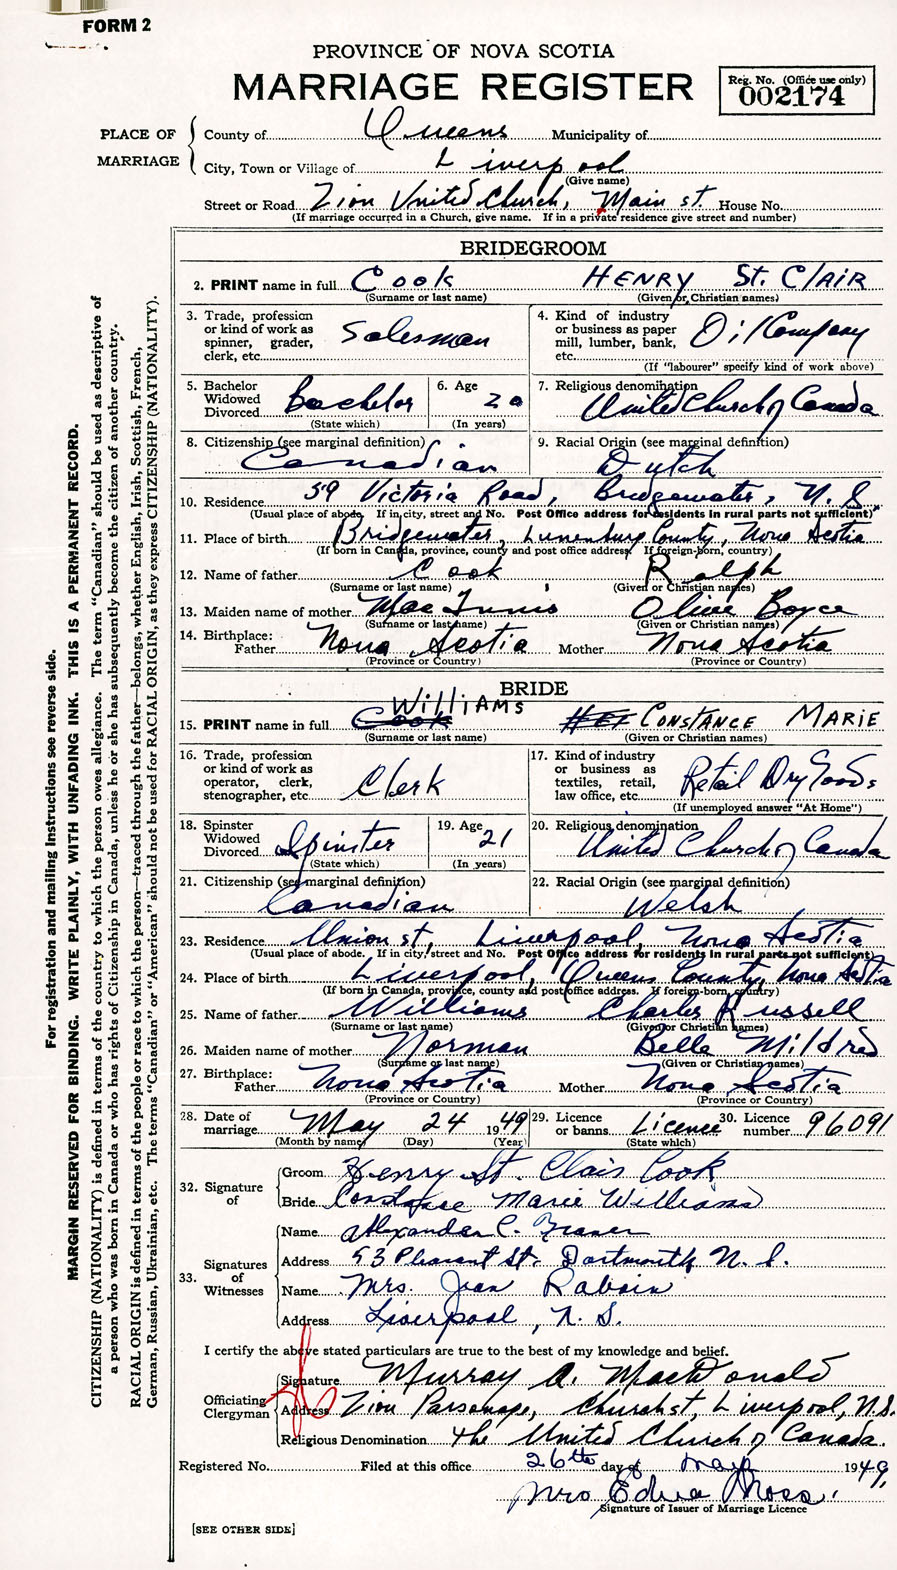 FORM 2
PROVINCE OF NOVA SCOTIA
MARRIAGE REGISTER
Reg. No. (Office use only)
002174
PLACE OF MARRIAGE
County of Queens Municipality of
City, Town or Village of Liverpool
(Give name)
Street or Road Zion United Church, Main st. House No.
(If marriage occurred in a Church, give name. If in a private residence give street and number)
BRIDEGROOM
2. PRINT name in full Cook HENRY St. ClAIR
(Surname or last name) (Given or Christian names)
3. Trade, profession or kind of work as spinner, grader, clerk, etc. Salesman
4. Kind of industry or business as paper mill, lumber, bank, etc. Oil Company
(If "labourer" specify kind of work above)
5. Bachelor Widowed Divorced Bachelor
(State which)
6. Age 20
(In years)
7. Religious denomination United Church of Canada
8. Citizenship (see marginal definition) Canadian
9. Racial Origin (see marginal definition) Dutch
10. Residence 59 Victoria Road, Bridgewater, N.S
(Usual place of abode. If in city, street and No. Post Office address for residents in rural parts not sufficient)
11. Place of birth Bridgewater, Lunenburg County, Nova Scotia
(If born in Canada, province, county and post office address. If foreign-born, country)
12. Name of father Cook Ralph
(Surname or last name) (Given or Christian names)
13. Maiden name of mother MacInnis Olive Boyce
(Surname or last name) (Given or Christian names)
14. Birthplace: Father Nova Scotia Mother Nova Scotia
(Province or Country) (Province or Country)
BRIDE
WilliAMS
15. PRINT name in full Cook HEN CONSTANCE MARIE
(Surname or last name) (Given or Christian names)
16. Trade, profession or kind of work as operator, clerk, stenographer, etc. Clerk
17. Kind of industry or business as textiles, retail, law office, etc. Retail Dry Goods
(If unemployed answer "At Home")
18. Spinster Widowed Divorced Spinster
(State which)
19. Age 21
(In years)
20. Religious denomination United Church of Canada
21. Citizenship (see marginal definition) Canadian
22. Racial Origin (see marginal definition) Welsh
23. Residence Union st, Liverpool, Nova Scotia
(Usual place of abode. If in city, street and No. Post Office address for residents in rural parts not sufficient)
24. Place of birth Liverpool, Queens County, Nova Scotia
(If born in Canada, province, county and post office address. If foreign-born, country)
25. Name of father Williams Charles Russell
(Surname or last name) (Given or Christian names)
26. Maiden name of mother Norman Belle Mildred
(Surname or last name) (Given or Christian names)
27. Birthplace: Father Nova Scotia Mother Nova Scotia
(Province or Country) (Province or Country)
28. Date of marriage May 24 1949
(Month by name) (Day) (Year)
29. Licence or banns Licence
(State which)
30. Licence number 96091
32. Signature of
Groom Henry St. Clair Cook
Bride Constance Marie Williams
33. Signatures of Witnesses
Name Alexander C. Fraser
Address 53 Pleasant St. Dartmouth N.S.
Name Mrs. Jean
Address Liverpool, N.S.
I certify the above stated particulars are true to the best of my knowledge and belief.
Officiating Clergyman
Signature Murray A. MacDonald
Address Zion Parsonage, Church st, Liverpool, N.S.
Religious Denomination the United Church of Canada.
Registered No. Filed at this office 26th day of May 1949.
Mrs Edna
Signature of Issuer of Marriage Licence
[SEE OTHER SIDE]
For registration and mailing instructions see reverse side.
MARGIN RESERVED FOR BINDING. WRITE PLAINLY, WITH UNFADING INK. THIS IS A PERMANENT RECORD.
CITIZENSHIP (NATIONALITY) is defined in terms of the country to which the person owes allegiance. The term "Canadian" should be used as descriptive of
a person who was born in Canada or who has rights of Citizenship in Canada, unless he or she has subsequently become the citizen of another country.
RACIAL ORIGIN is defined in terms of the people or race to which the person—traced through the father—belongs, whether English, Irish, Scottish, French,
German, Russian, Ukrainian, etc. The terms "Canadian" or "American" should not be used for RACIAL ORIGIN, as they express CITIZENSHIP (NATIONALITY).